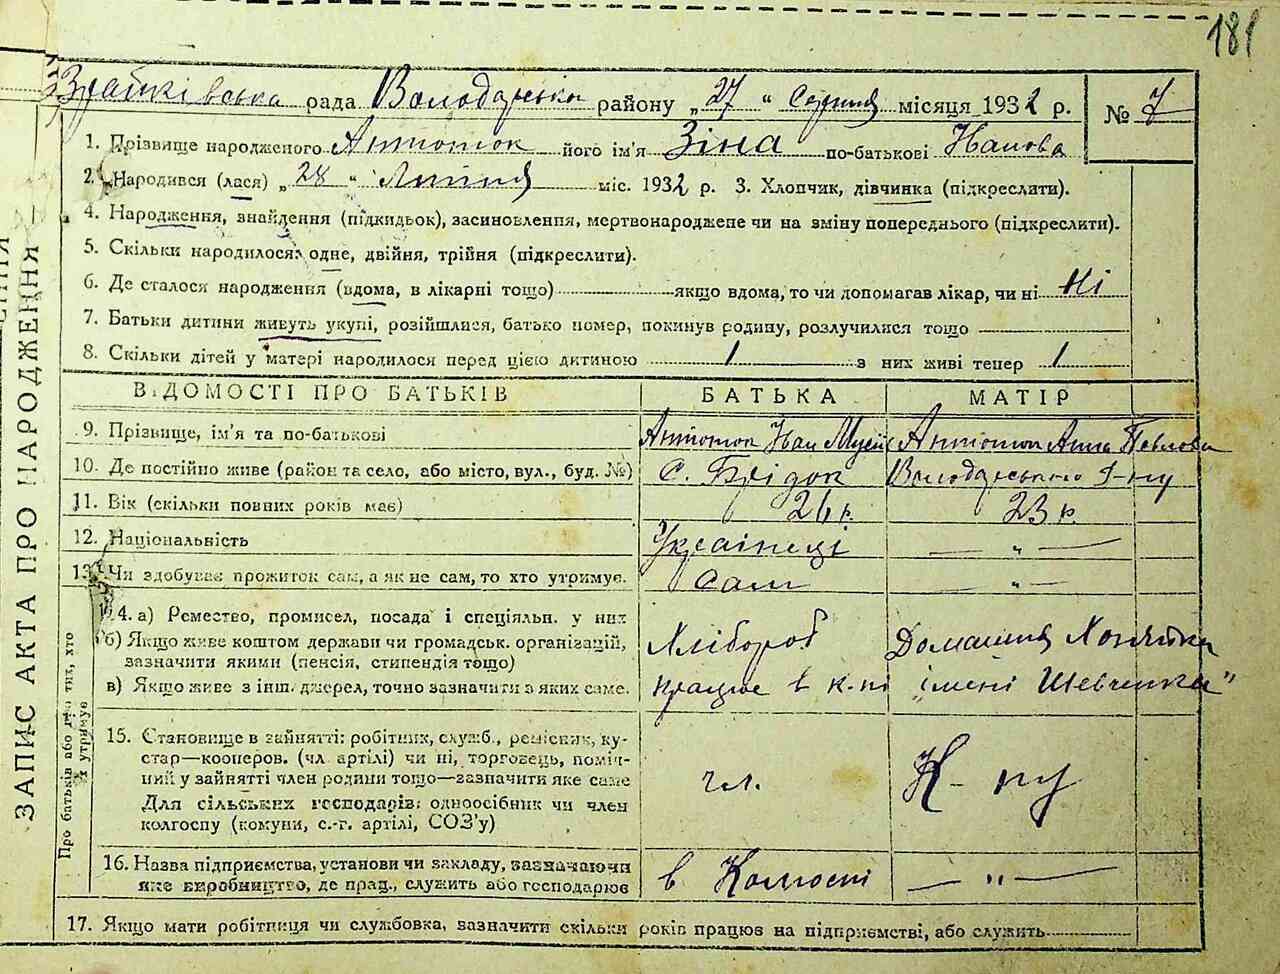 181
рада Володарська району „27" Серпня місяця 1932 р. № 7
1. Прізвище народженого Антонюк його ім'я Зіна по-батькові Іванова
2. Народився (лася) „28" Липня міс. 1932 р. 3. Хлопчик, дівчинка (підкреслити).
4. Народження, знайдення (підкидьок), засиновлення, мертвонароджене чи на зміну попереднього (підкреслити).
5. Скільки народилося: одне, двійня, трійня (підкреслити).
6. Де сталося народження (вдома, в лікарні тощо) якщо вдома, то чи допомагав лікар, чи ні Ні
7. Батьки дитини живуть укупі, розійшлися, батько помер, покинув родину, розлучилися тощо
8. Скільки дітей у матері народилося перед цією дитиною 1 з них живі тепер 1
ВІДОМОСТІ ПРО БАТЬКІВ БАТЬКА МАТІР
9. Прізвище, ім'я та по-батькові Антонюк Іван Антонюк Анна Павлова
10. Де постійно живе (район та село, або місто, вул., буд. №) С. Брідок Володарського р-ну
11. Вік (скільки повних років має) 26 р. 23 р.
12. Національність Українці — „ —
13. Чи здобуває прожиток сам, а як не сам, то хто утримує. Сам „ —
14. а) Ремество, промисел, посада і спеціяльн. у них
б) Якщо живе коштом держави чи громадськ. організацій, зазначити якими (пенсія, стипендія тощо) Хлібороб Домашня Хозяйка
в) Якщо живе з інш. джерел, точно зазначити з яких саме. працює в к-пі „імені Шевченка"
15. Становище в зайнятті: робітник, служб., ремісник, ку-
стар—кооперов. (чл артілі) чи ні, торговець, поміч-
ний у зайнятті член родини тощо—зазначити яке саме чл. К-пу
Для сільських господарів: одноосібник чи член
колгоспу (комуни, с.-г. артілі, СОЗ'у)
16. Назва підприємства, установи чи закладу, зазначаючи
яке виробництво, де прац., служить або господарює в Колгоспі — „ —
17. Якщо мати робітниця чи службовка, зазначити скільки років працює на підприємстві, або служить
ЗАПИС АКТА ПРО НАРОДЖЕННЯ
Про батьків або про тих, хто
їх утримує